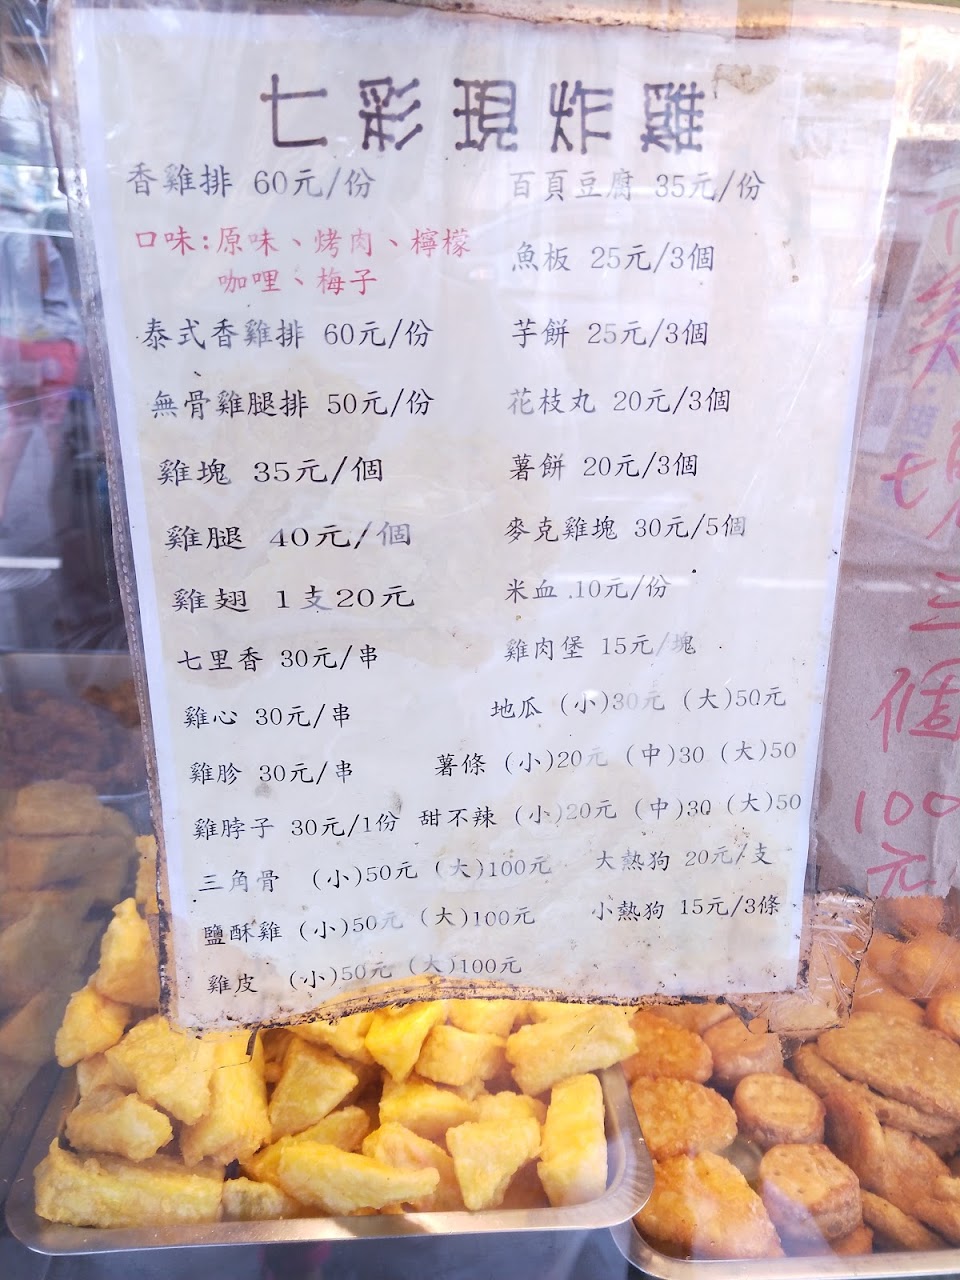 七彩現炸雞
香雞排 60元/份
口味:原味、烤肉、檸檬
咖哩、梅子
泰式香雞排 60元/份
無骨雞腿排 50元/份
雞塊 35元/個
雞腿 40元/個
雞翅 1支20元
七里香 30元/串
雞心 30元/串
雞胗 30元/串
雞脖子 30元/1份
三角骨 (小)50元 (大)100元
鹽酥雞 (小)50元 (大)100元
雞皮 (小)50元 (大)100元
百頁豆腐 35元/份
魚板 25元/3個
芋餅 25元/3個
花枝丸 20元/3個
薯餅 20元/3個
麥克雞塊 30元/5個
米血 10元/份
雞肉堡 15元/塊
地瓜 (小)30元 (大)50元
薯條 (小)20元 (中)30 (大)50
甜不辣 (小)20元 (中)30 (大)50
大熱狗 20元/支
小熱狗 15元/3條
三
個
100
元